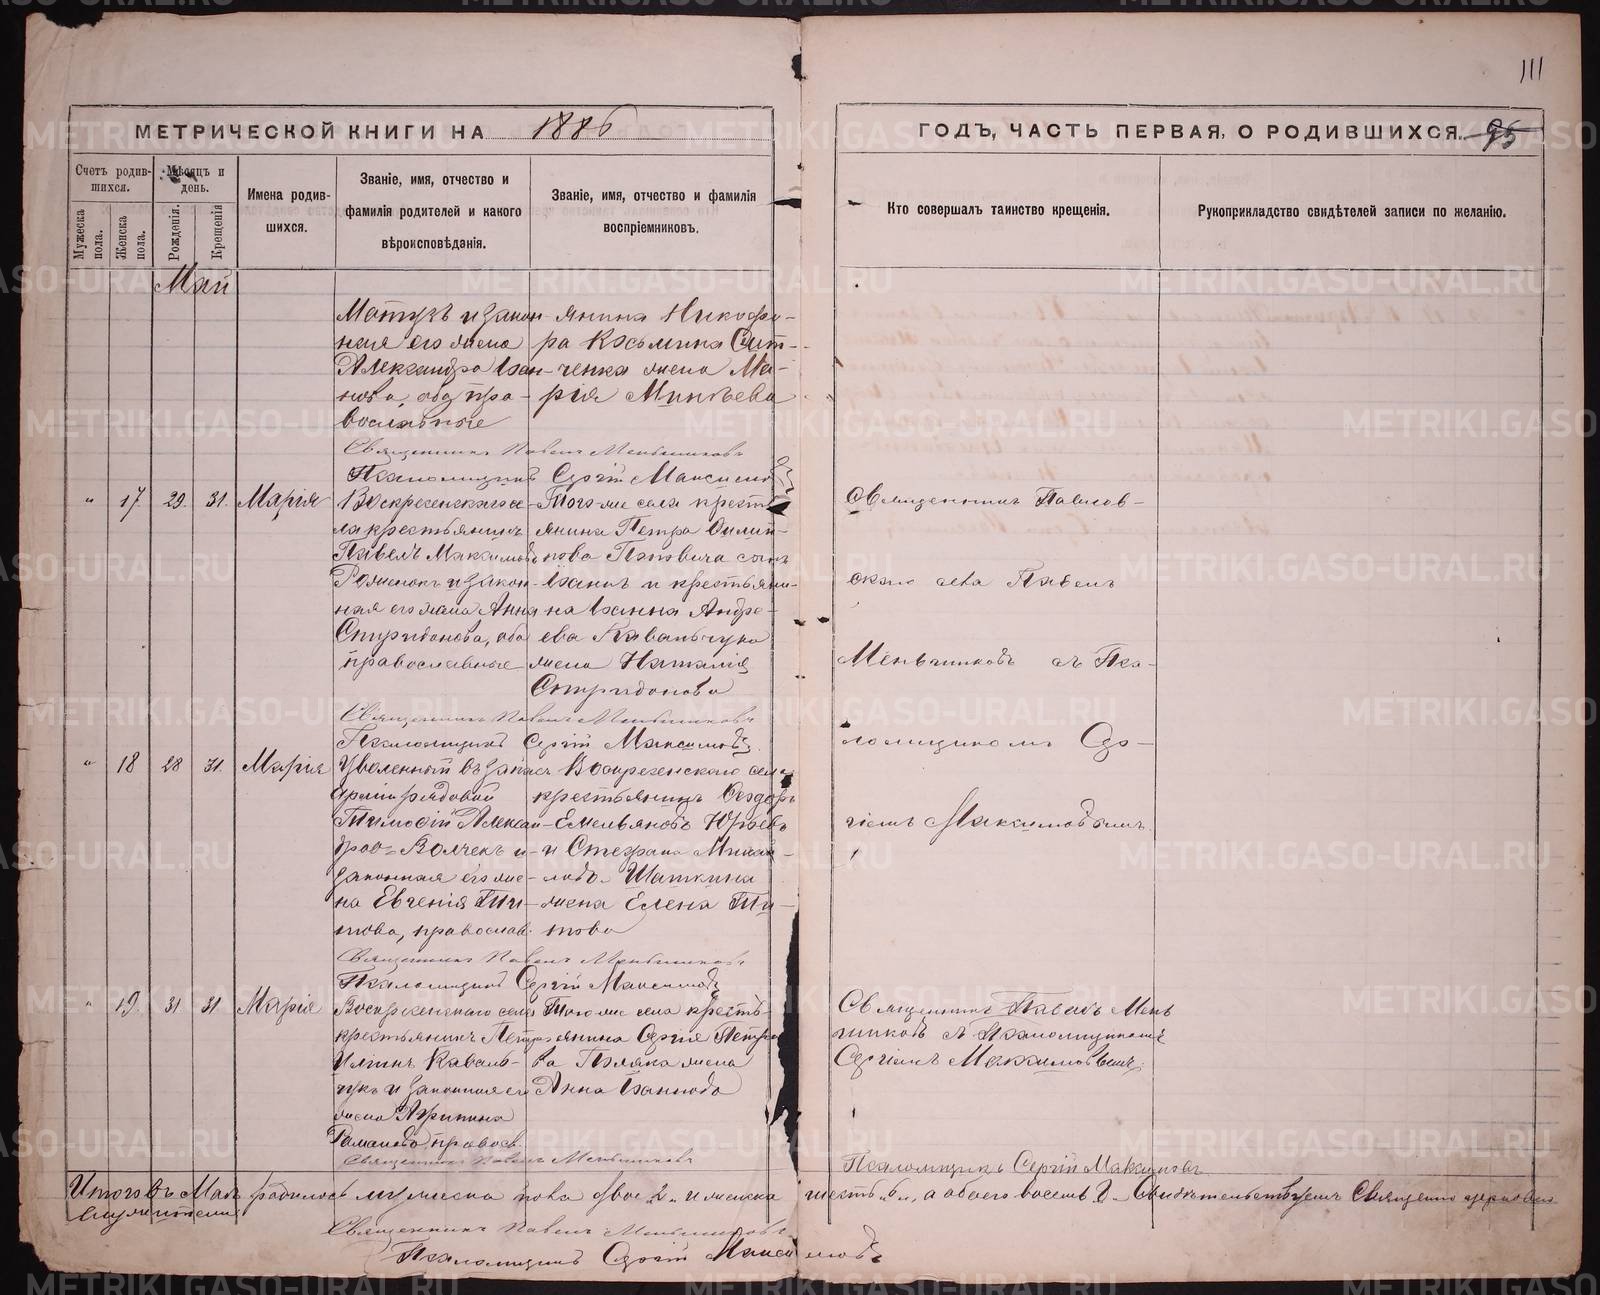 111
МЕТРИЧЕСКОЙ КНИГИ НА 1886
ГОДЪ, ЧАСТЬ ПЕРВАЯ, О РОДИВШИХСЯ. 95
Счетъ родив-
шихся.
Мужеска
пола.
Женска
пола.
Мѣсяцъ и
день.
Рожденія.
Крещенія
Имена родив-
шихся.
Званіе, имя, отчество и
фамилія родителей и какого
вѣроисповѣданія.
Званіе, имя, отчество и фамилія
воспріемниковъ.
Кто совершалъ таинство крещенія.
Рукоприкладство свидѣтелей записи по желанію.
Май
и закон-
ная его жена
Александра Іоан-
нова, оба пра-
вославные
янина Никифо-
ра Козьмина
жена Ма-
рія
Священникъ Павелъ Меньшиковъ
Псаломщикъ Сергій Максимовъ
" 17 29. 31. Марія
Воскресенскаго се-
ла крестьянинъ
Павелъ Максимовъ
и закон-
ная его жена Анна
Спиридонова, оба
православные
Того же села кресть-
янина Петра Филип-
пова сынъ
Іоаннъ и крестьяни-
на Іоанна Андре-
ева Ковальчука
жена Наталія
Спиридонова
Священникъ Павелъ Меньшиковъ
Псаломщикъ Сергій Максимовъ
" 18 28 31. Марія
Уволенный въ запасъ
арміи рядовой
Тимофій Алексан-
дров Волчекъ и
законная его же-
на Евгенія Ти-
това, православ.
Воскресенскаго села
крестьянинъ Феодоръ
Емельяновъ Юрьевъ
и Стефана Михай-
лова Шаткина
жена Елена Ти-
това
Священникъ Павелъ Меньшиковъ
Псаломщикъ Сергій Максимовъ
" 19. 31 31 Марія
Воскресенскаго села
крестьянинъ Петръ
Каваль-
чукъ и законная его
жена Агрипина
Романова, правосл.
Того же села кресть-
янина Сергія Петро-
ва Поляка жена
Анна Іоаннова
Священникъ Павелъ Меньшиковъ
Священникъ Павлов-
скаго села Павелъ
Меньшиковъ съ Пса-
ломщикомъ Сер-
гіемъ Максимовымъ.
Священникъ Павелъ Мень
шиковъ съ Псаломщикомъ
Сергіемъ Максимовымъ.
Псаломщикъ Сергій Максимовъ
Итого въ Маѣ родилось мужеска пола двое 2. и женска шесть 6., а обоего восемь 8. Свидѣтельствуемъ Священно церковно
служители:
Священникъ Павелъ Меньшиковъ
Псаломщикъ Сергій Максимовъ
METRIKI.GASO-URAL.RU